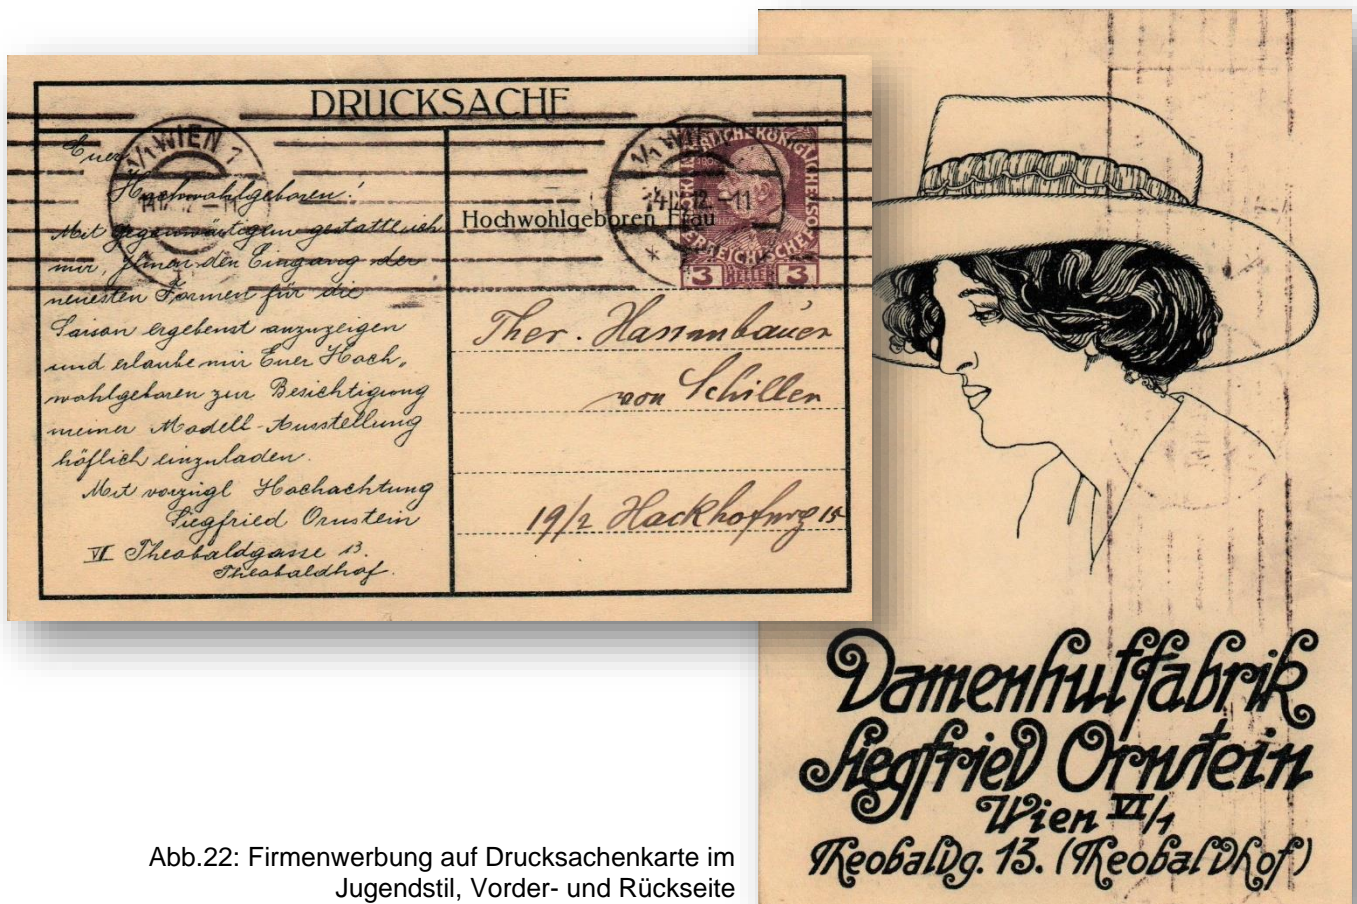 DRUCKSACHE
1/1 WIEN 1
Euer
Hochwohlgeboren!
Mit Gegenwärtigem gestatte ich
mir, Ihnen den Eingang der
neuesten Formen für die
Saison ergebenst anzuzeigen
und erlaube mir Euer Hoch„
wohlgeboren zur Besichtigung
meiner Modell-Ausstellung
höflich einzuladen.
Mit vorzügl Hochachtung
Siegfried Ornstein
VI Theobaldgasse 13.
Theobaldhof.
1/1 WIEN
12.-11
3 HELLER 3
Hochwohlgeboren Frau
Ther. Hassenbauer
von Schiller
19/2 Hackhoferg 15
Damenhutfabrik
Siegfried Ornstein
Wien VI/1
Theobaldg. 13. (Theobaldhof)
Abb.22: Firmenwerbung auf Drucksachenkarte im
Jugendstil, Vorder- und Rückseite